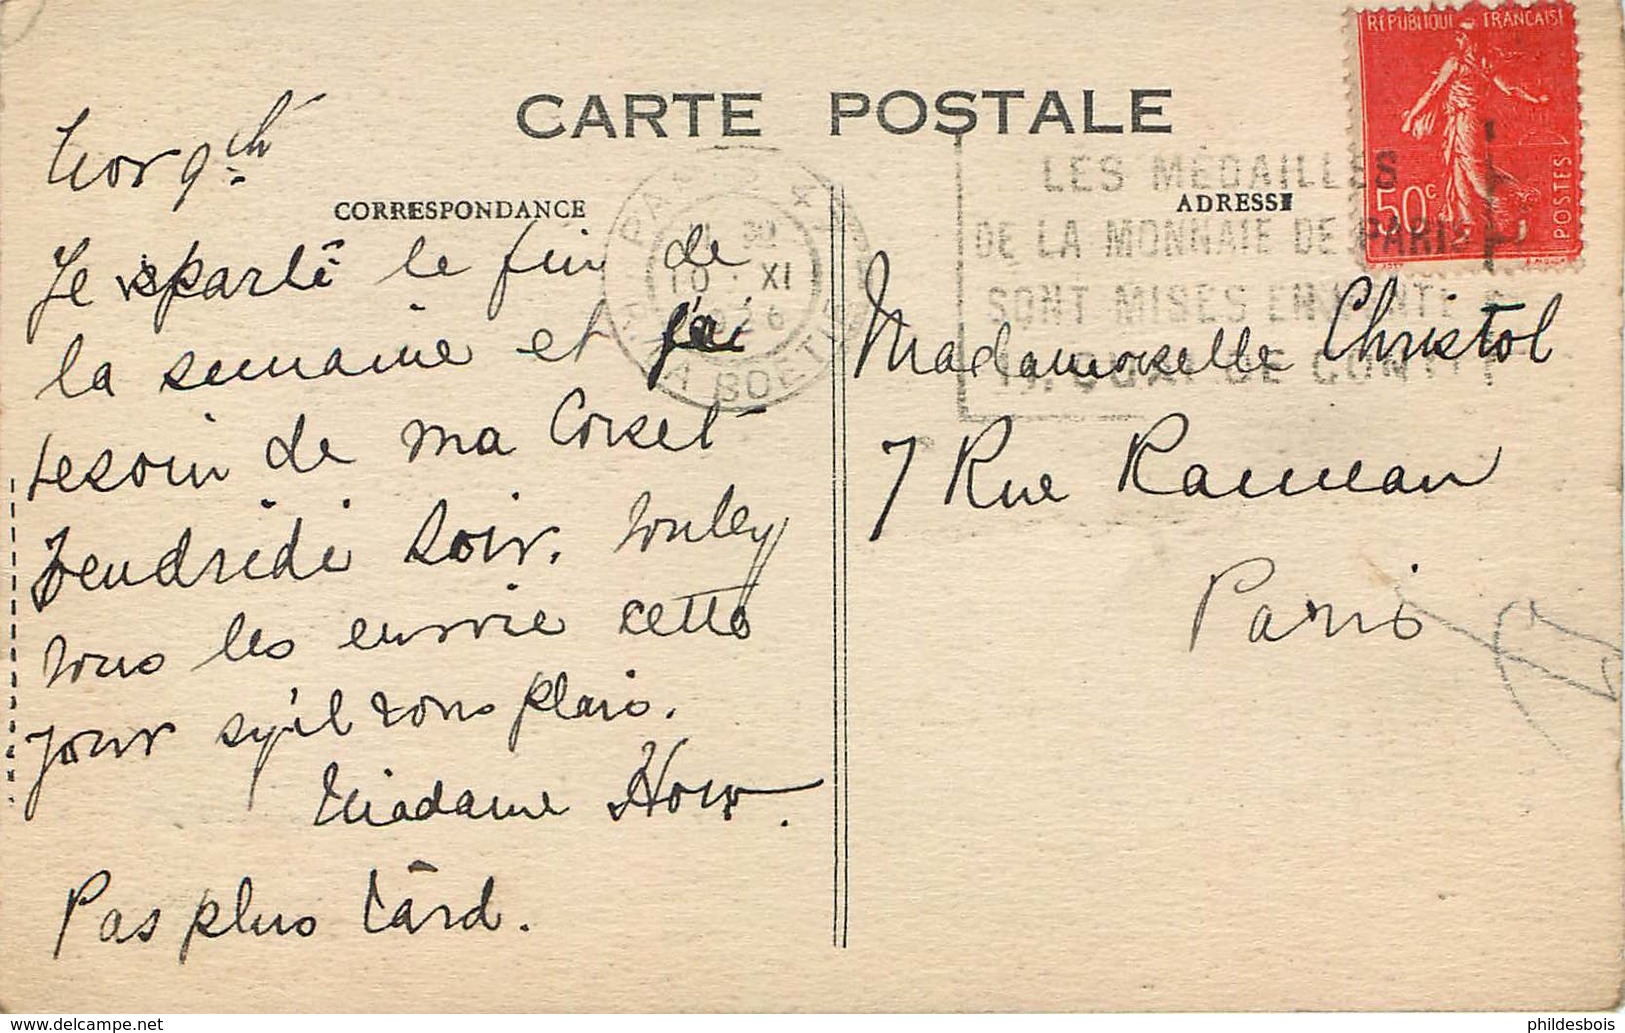 CARTE POSTALE
Nov 9th
CORRESPONDANCE
ADRESSE
Je parti le fin de
la semaine et j'ai
besoin de ma Corset
Vendredi Soir. Vouley
vous les envoie cette
jour s'il vous plais.
Madame How.
Pas plus tard.
Mademoiselle Christol
7 Rue Rameau
Paris
REPUBLIQUE FRANÇAISE
50c
POSTES
10 XI
1926
LA BOETIE
LES MÉDAILLES
DE LA MONNAIE DE PARIS
SONT MISES EN VENTE
11, QUAI DE CONTI
phildesbois